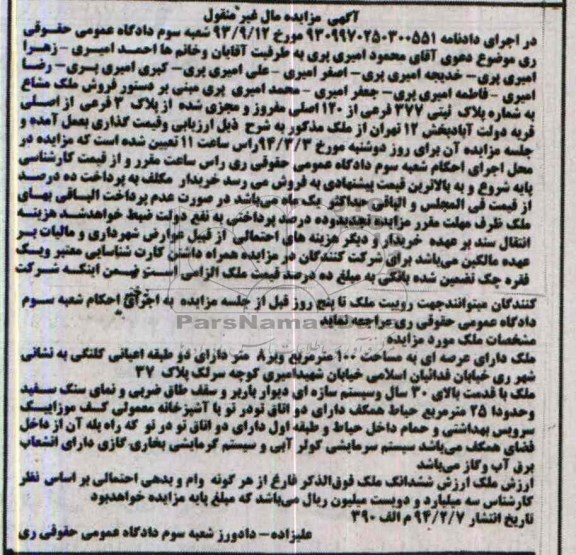 آگهی مزایده مال غیر منقول
در اجرای دادنامه ۹۳۰۹۹۷۰۲۵۰۳۰۰۵۵۱ مورخ ۹۳/۹/۱۲ شعبه سوم دادگاه عمومی حقوقی
ری موضوع دعوی آقای محمود امیری پری به طرفیت آقایان وخانم ها احمد امیری - زهرا
امیری پری- خدیجه امیری پری- اصغر امیری -علی امیری پری- کبری امیری پری- رضا
امیری - فاطمه امیری پری- جعفر امیری - محمد امیری پری مبنی بر دستور فروش ملک مشاع
به شماره پلاک ثبتی ۳۷۷ فرعی از ۱۲۰ اصلی مفروز و مجزی شده از پلاک ۳ فرعی از اصلی
قریه دولت آبادبخش ۱۲ تهران از ملک مذکور به شرح ذیل ارزیابی وقیمت گذاری بعمل آمده و
جلسه مزایده آن برای روز دوشنبه مورخ ۹۴/۳/۳راس ساعت ۱۱ تعیین شده است که مزایده در
محل اجرای احکام شعبه سوم دادگاه عمومی حقوقی ری راس ساعت مقرر و از قیمت کارشناسی
پایه شروع و به بالاترین قیمت پیشنهادی به فروش می رسد خریدار مکلف به پرداخت ده درصد
از قیمت فی المجلس و الباقی حداکثر یک ماه می‌باشد در صورت عدم پرداخت الباقی بهای
ملک ظرف مهلت مقرر مزایده تجدیدوده درصد پرداختی به نفع دولت ضبط خواهدشد هزینه
انتقال سند بر عهده خریدار و دیگر هزینه های احتمالی از قبیل عوارض شهرداری و مالیات بر
عهده مالکین می‌باشد برای شرکت کنندگان در مزایده همراه داشتن کارت شناسایی معتبر ویک
فقره چک تضمین شده بانکی به مبلغ ده درصد قیمت ملک الزامی است ضمن اینکه شرکت
کنندگان میتوانندجهت رویت ملک تا پنج روز قبل از جلسه مزایده به اجرای احکام شعبه سوم
دادگاه عمومی حقوقی ری مراجعه نماید
ParsNamad
مشخصات ملک مورد مزایده
ملک دارای عرصه ای به مساحت ۱۰۰ مترمربع وبر۸ متر دارای دو طبقه اعیانی کلنگی به نشانی
شهر ری خیابان فدائیان اسلامی خیابان شهیدامیری کوچه سرلک پلاک ۳۷
ملک با قدمت بالای ۳۰ سال وسیستم سازه ای دیوار باربر و سقف طاق ضربی و نمای سنگ سفید
وحدودا ۲۵ مترمربع حیاط همکف دارای دو اتاق تودر تو با آشپزخانه معمولی کف موزاییک
سرویس بهداشتی و حمام داخل حیاط و طبقه اول دارای دو اتاق تو در تو که راه پله آن از داخل
فضای همکف می‌باشد سیستم سرمایشی کولر آبی و سیستم گرمایشی بخاری گازی دارای انشعاب
برق آب وگاز می‌باشد
ارزش ملک ارزش ششدانک ملک فوق‌الذکر فارغ از هر گونه وام و بدهی احتمالی بر اساس نظر
کارشناس سه میلیارد و دویست میلیون ریال می‌باشد که مبلغ پایه مزایده خواهدبود
تاریخ انتشار ۹۴/۲/۷ م الف ۳۹۰
علیزاده- دادورز شعبه سوم دادگاه عمومی حقوقی ری